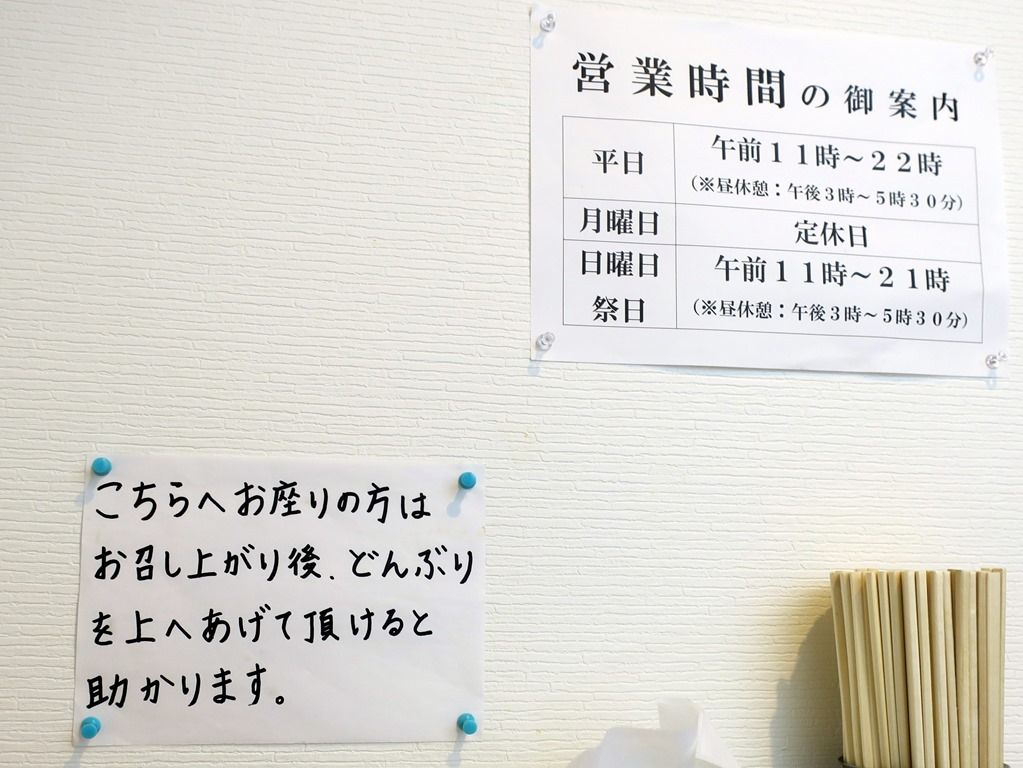 営業時間の御案内
平日
午前１１時～２２時
（※昼休憩：午後３時～５時３０分）
月曜日
定休日
日曜日
祭日
午前１１時～２１時
（※昼休憩：午後３時～５時３０分）
こちらへお座りの方は
お召し上がり後、どんぶり
を上へあげて頂けると
助かります。